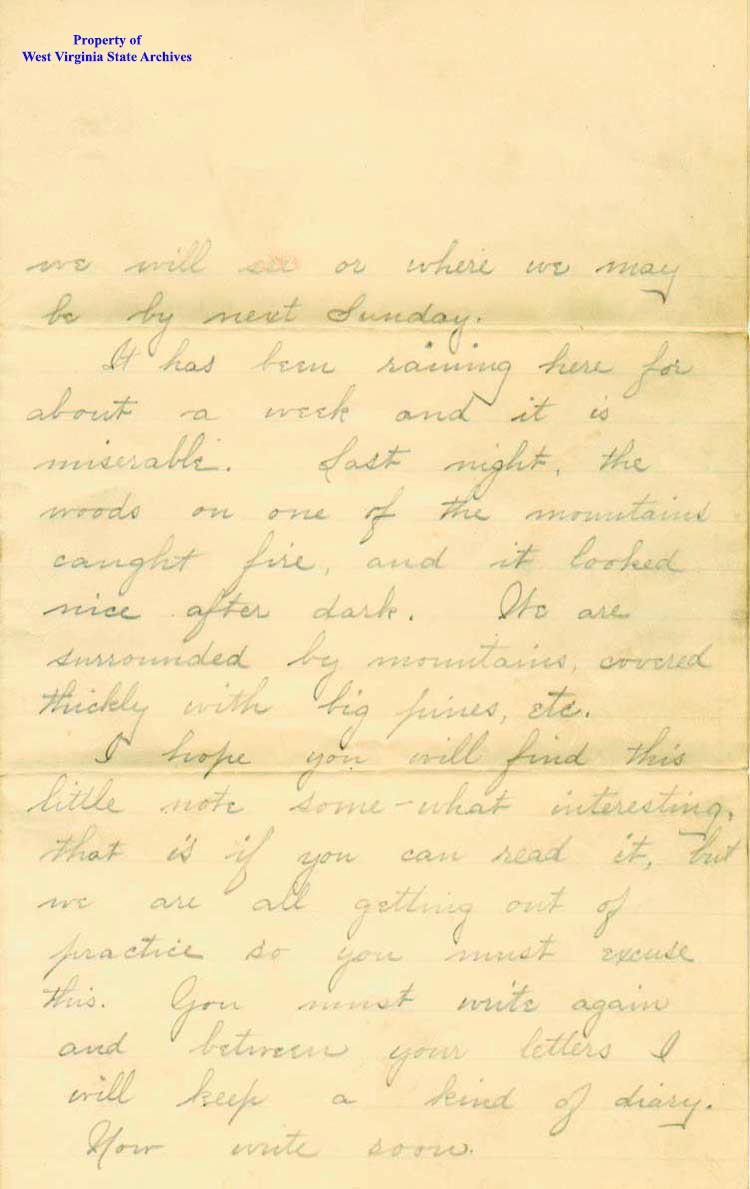 Property of
West Virginia State Archives
we will see or where we may
be by next Sunday.
It has been raining here for
about a week and it is
miserable. Last night, the
woods on one of the mountains
caught fire, and it looked
nice after dark. We are
surrounded by mountains, covered
thickly with big pines, etc.
I hope you will find this
little note some-what interesting,
that is if you can read it, but
we are all getting out of
practice so you must excuse
this. You must write again
and between your letters I
will keep a kind of diary.
Now write soon.